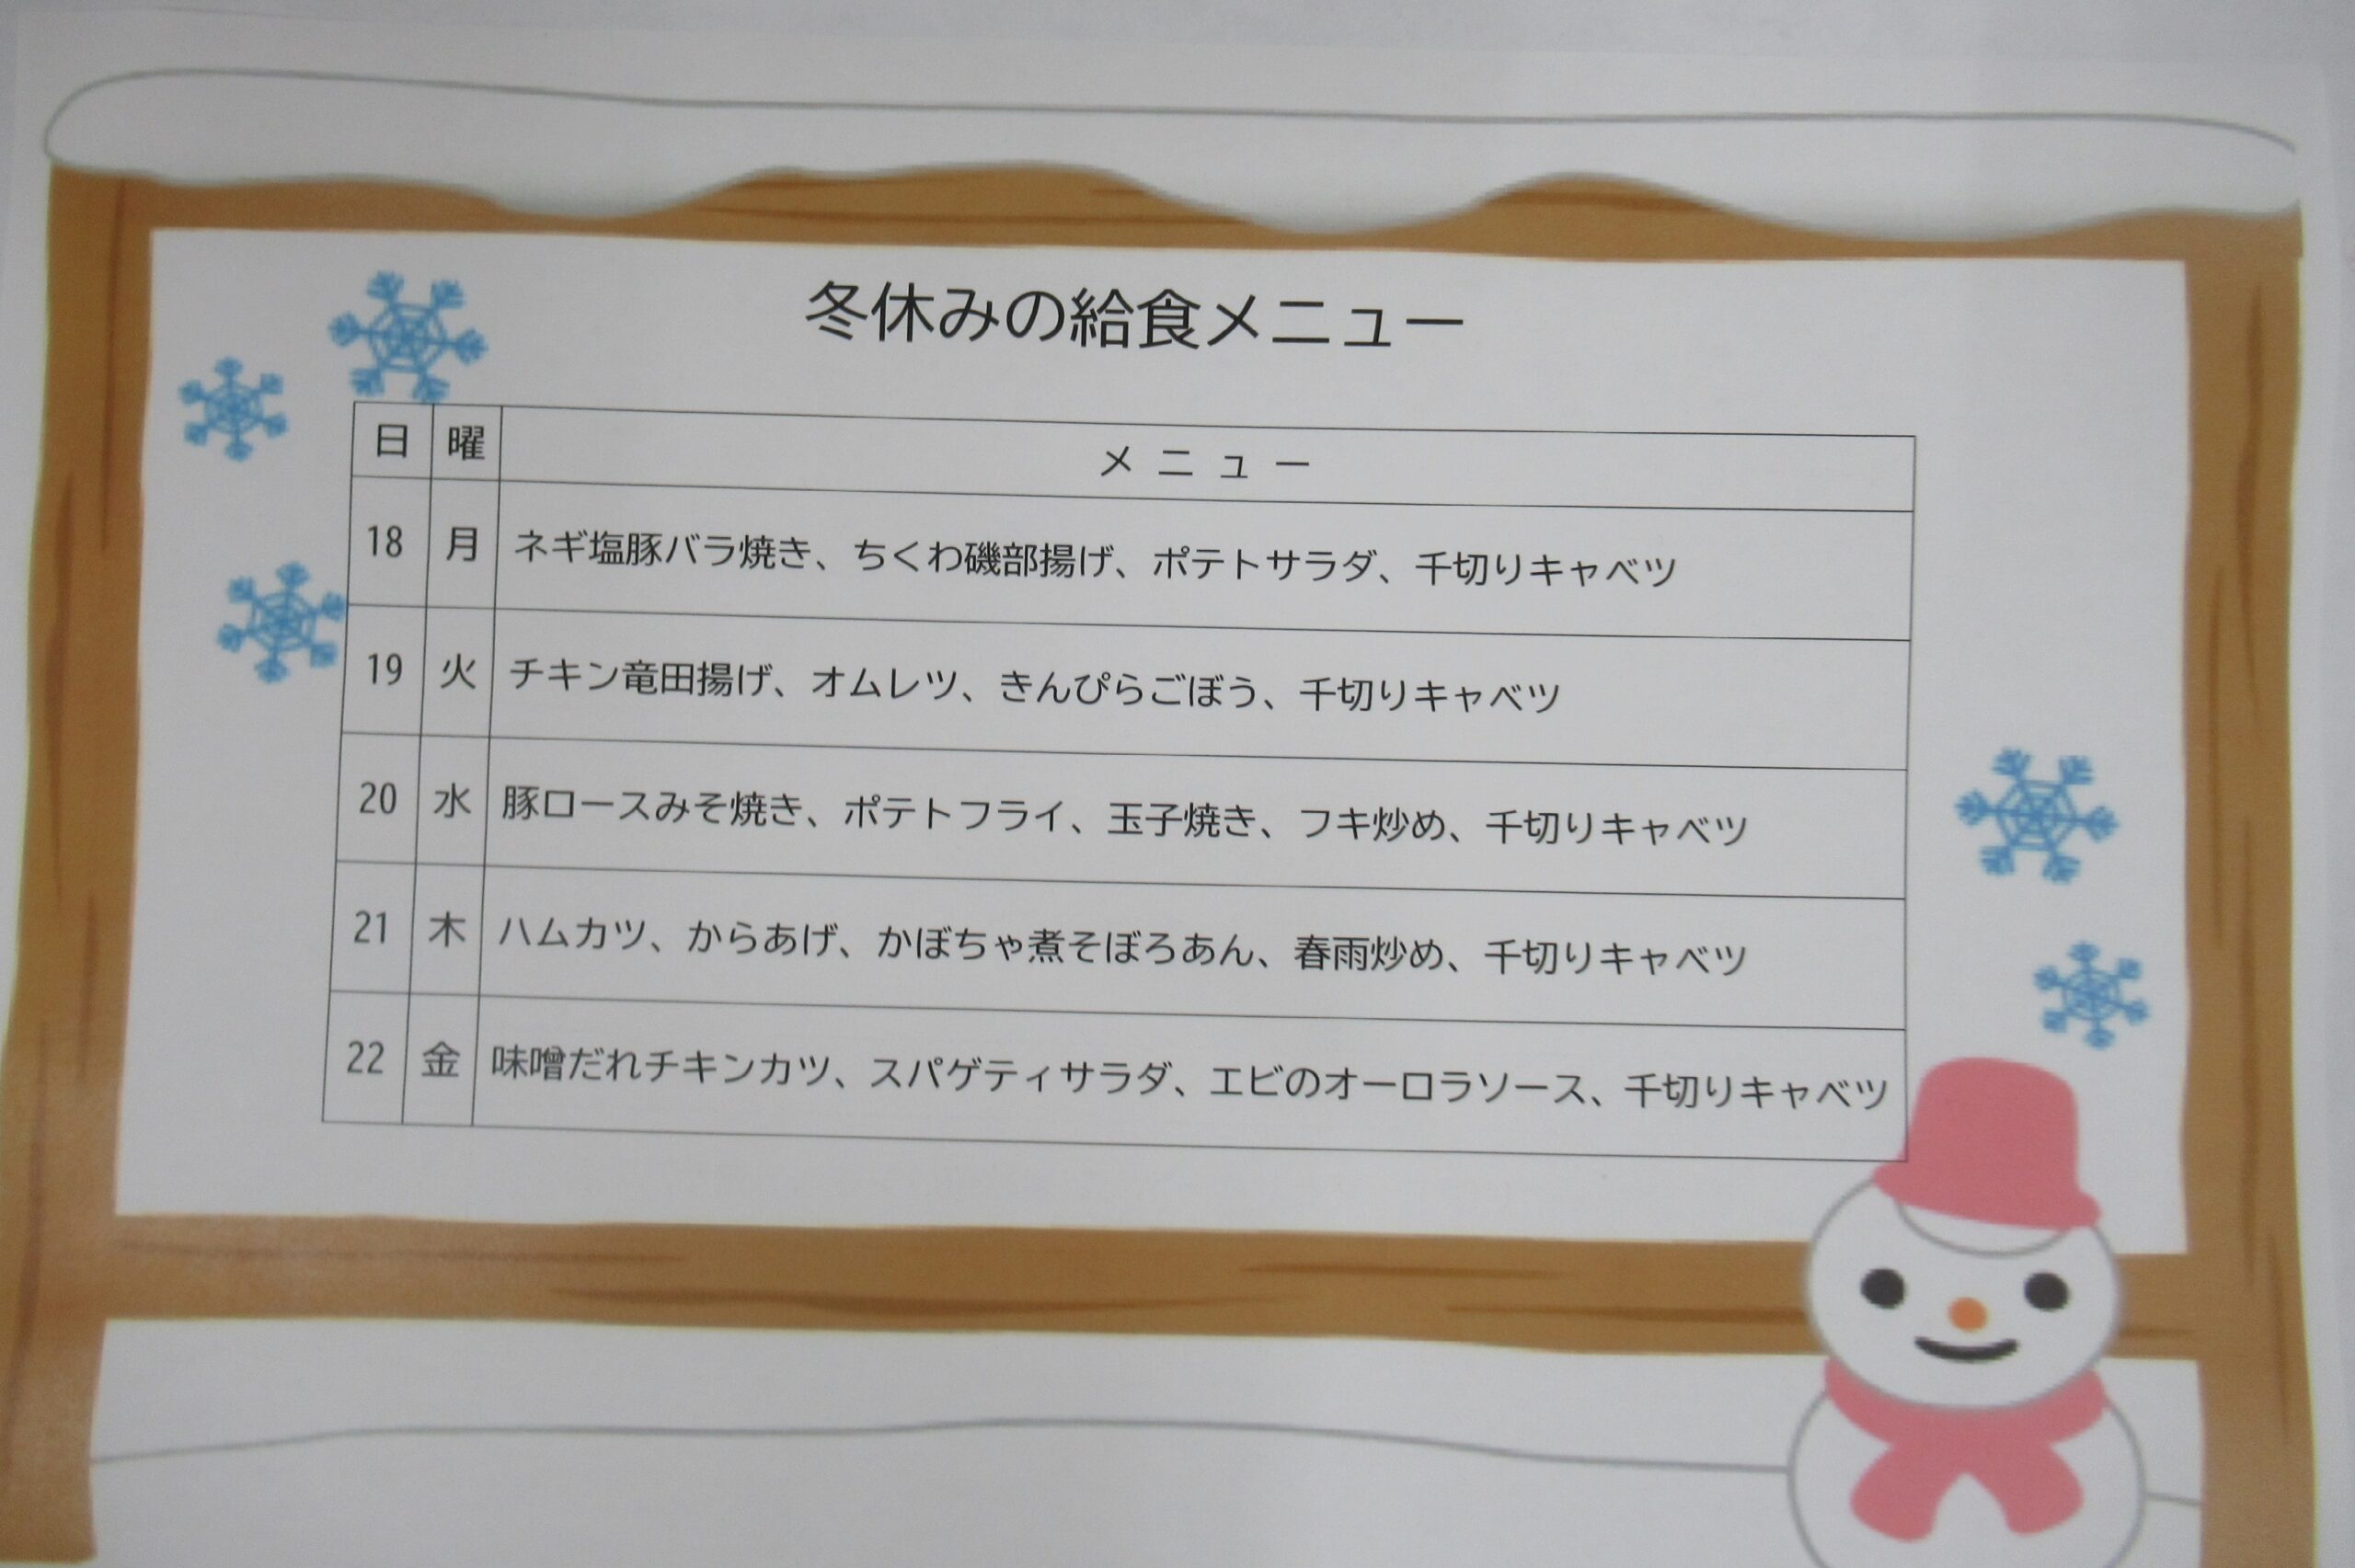 冬休みの給食メニュー
日 曜 メニュー
18 月 ネギ塩豚バラ焼き、ちくわ磯部揚げ、ポテトサラダ、千切りキャベツ
19 火 チキン竜田揚げ、オムレツ、きんぴらごぼう、千切りキャベツ
20 水 豚ロースみそ焼き、ポテトフライ、玉子焼き、フキ炒め、千切りキャベツ
21 木 ハムカツ、からあげ、かぼちゃ煮そぼろあん、春雨炒め、千切りキャベツ
22 金 味噌だれチキンカツ、スパゲティサラダ、エビのオーロラソース、千切りキャベツ